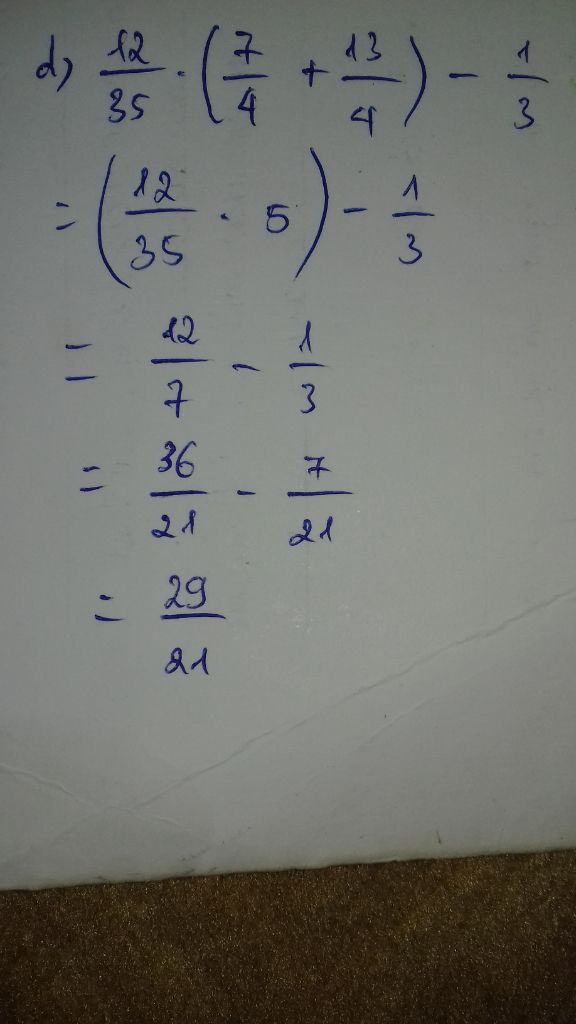 d) 12/35 · (7/4 + 13/4) - 1/3
= (12/35 · 5) - 1/3
= 12/7 - 1/3
= 36/21 - 7/21
= 29/21